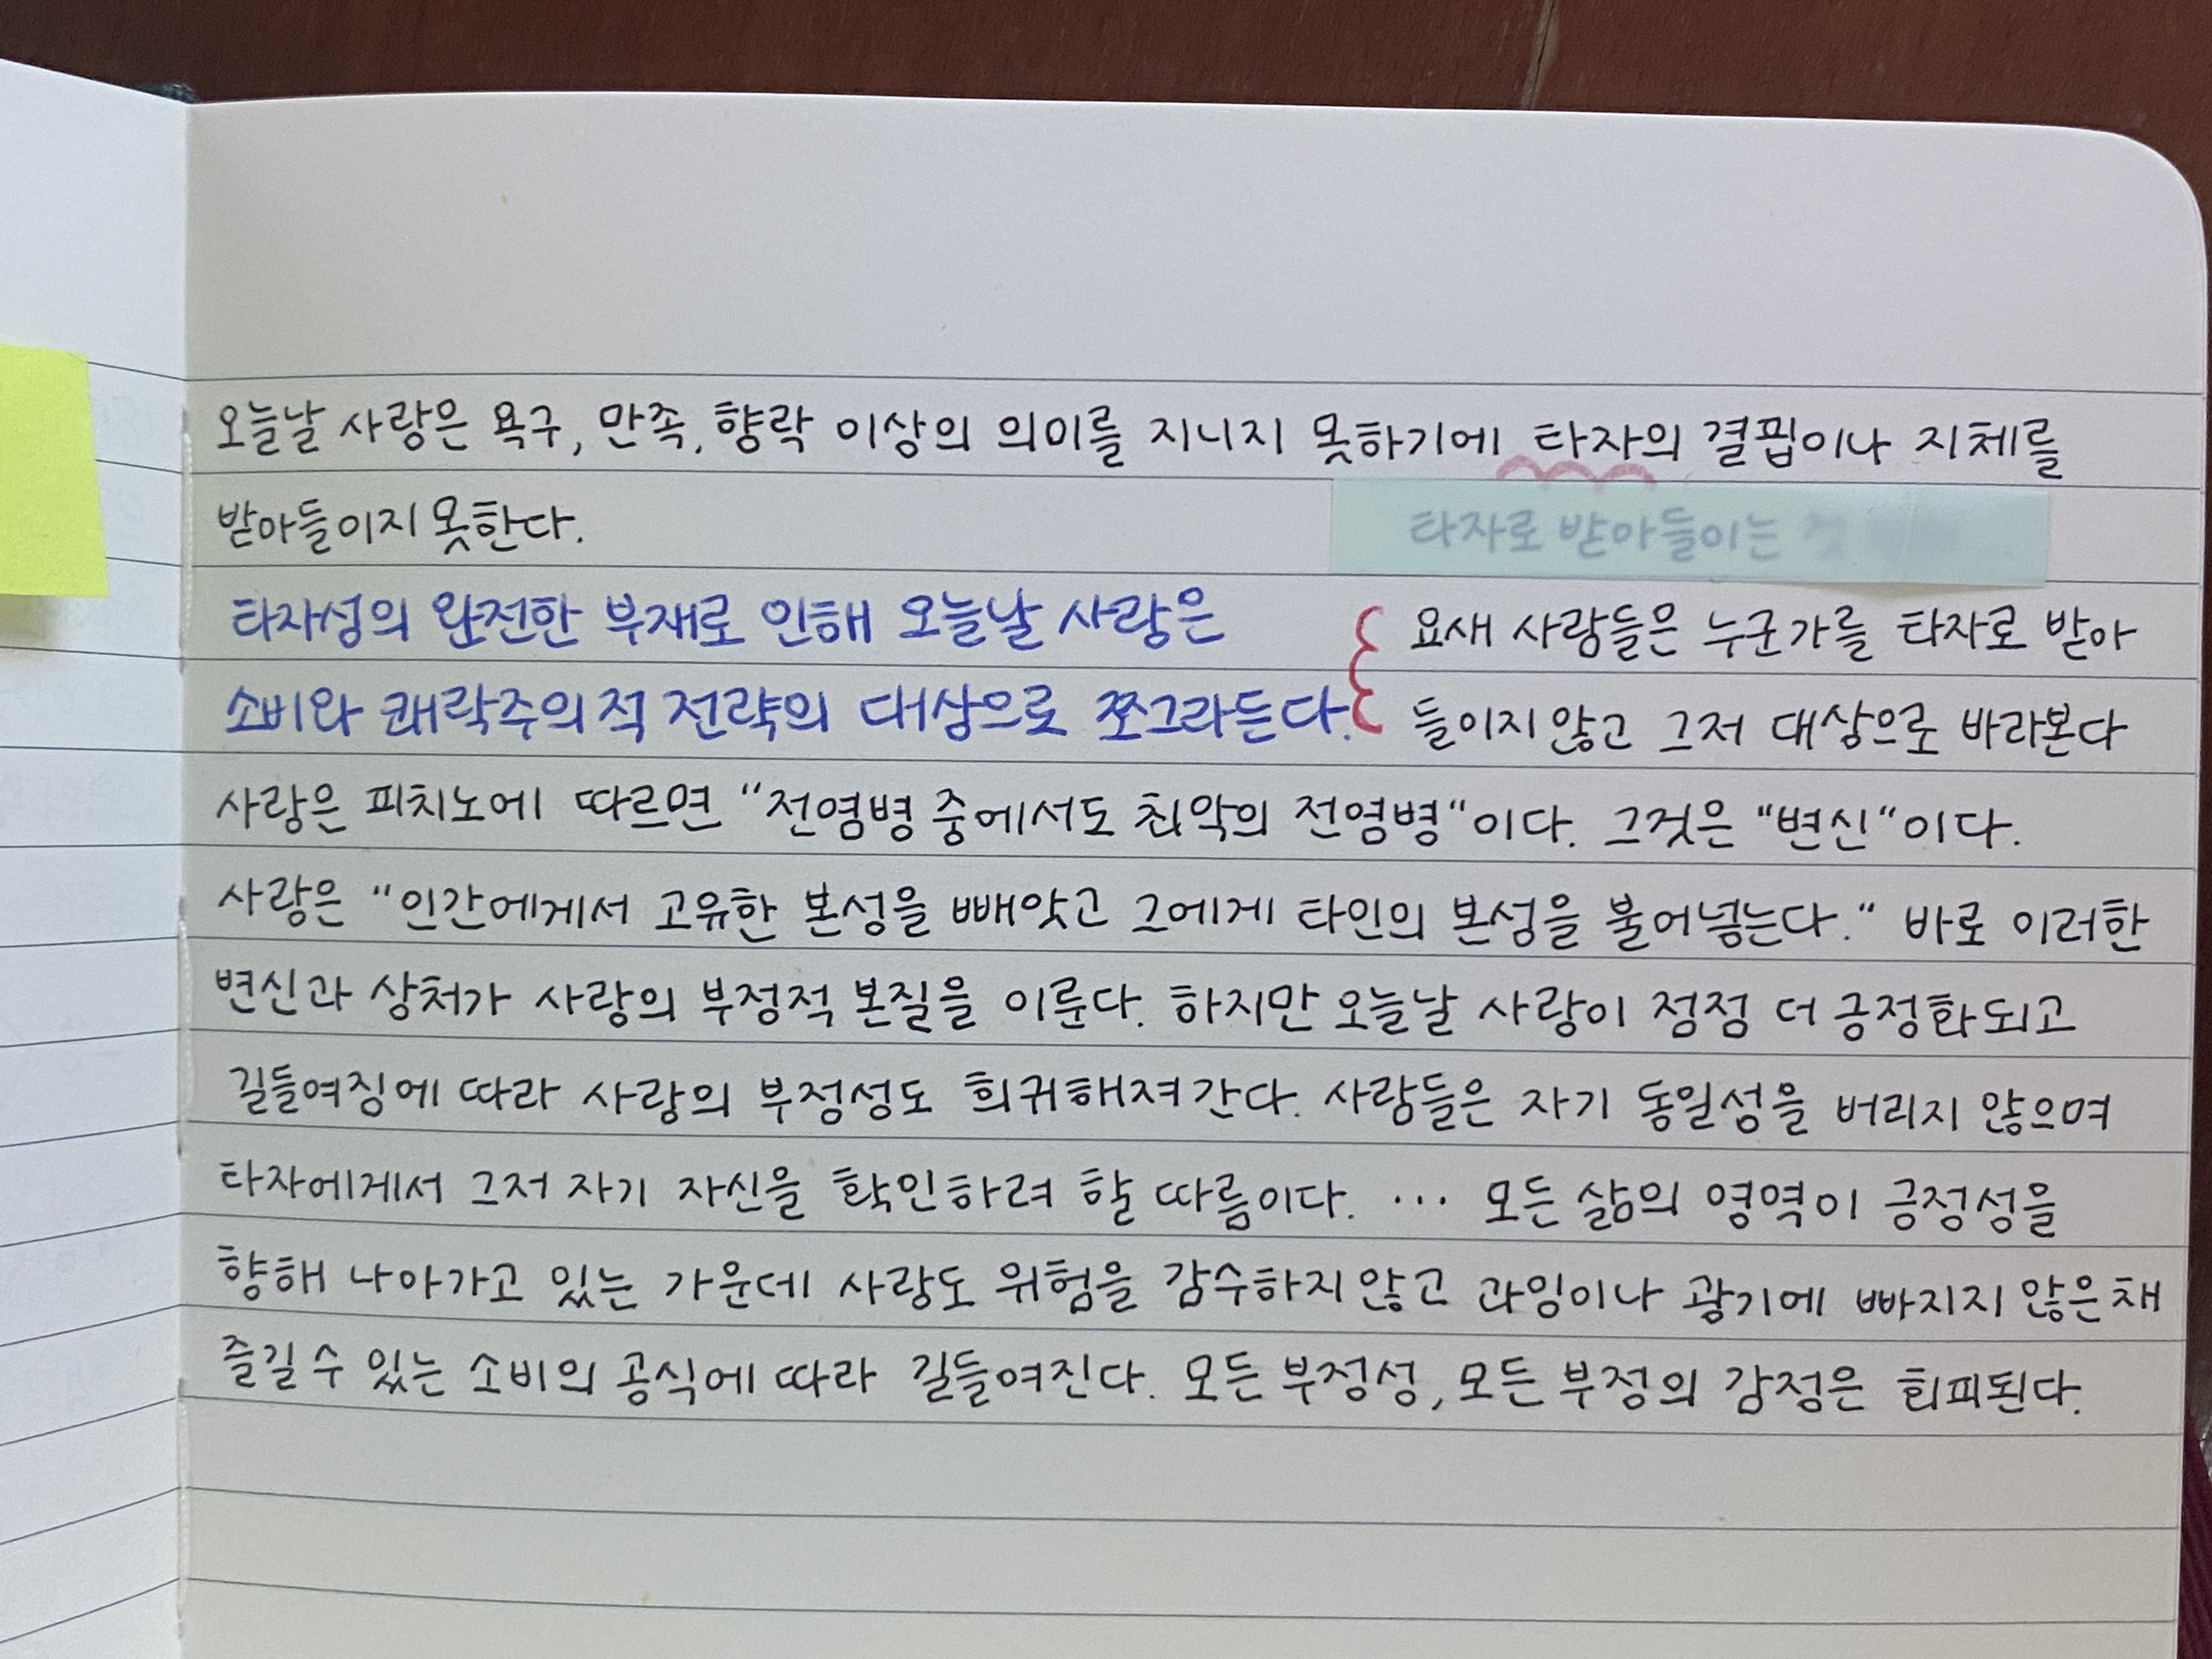 오늘날 사랑은 욕구, 만족, 향락 이상의 의미를 지니지 못하기에 타자의 결핍이나 지체를
받아들이지 못한다.
타자로 받아들이는
타자성의 완전한 부재로 인해 오늘날 사랑은
소비와 쾌락주의적 전략의 대상으로 쪼그라든다.
요새 사람들은 누군가를 타자로 받아
들이지 않고 그저 대상으로 바라본다
사랑은 피치노에 따르면 "전염병 중에서도 최악의 전염병"이다. 그것은 "변신"이다.
사랑은 "인간에게서 고유한 본성을 빼앗고 그에게 타인의 본성을 불어넣는다." 바로 이러한
변신과 상처가 사랑의 부정적 본질을 이룬다. 하지만 오늘날 사랑이 점점 더 긍정화되고
길들여짐에 따라 사랑의 부정성도 희귀해져간다. 사람들은 자기 동일성을 버리지 않으며
타자에게서 그저 자기 자신을 확인하려 할 따름이다. ... 모든 삶의 영역이 긍정성을
향해 나아가고 있는 가운데 사랑도 위험을 감수하지 않고 과잉이나 광기에 빠지지 않은 채
즐길 수 있는 소비의 공식에 따라 길들여진다. 모든 부정성, 모든 부정의 감정은 회피된다.